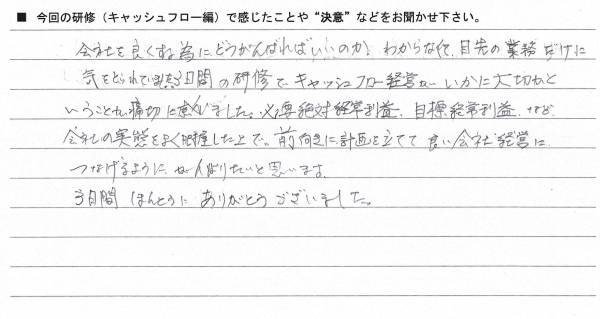 ■ 今回の研修（キャッシュフロー編）で感じたことや“決意”などをお聞かせ下さい。
会社を良くする為にどうがんばればいいのか？わからなくて、目先の業務だけに
気をとられて 3日間の研修でキャッシュフロー経営がいかに大切かと
いうことを痛切に感じました。必要絶対経常利益、目標経常利益、など
会社の実態をよく把握した上で、前向きに計画を立てて良い会社経営に
つなげるように、がんばりたいと思います。
3日間 ほんとうに ありがとうございました。